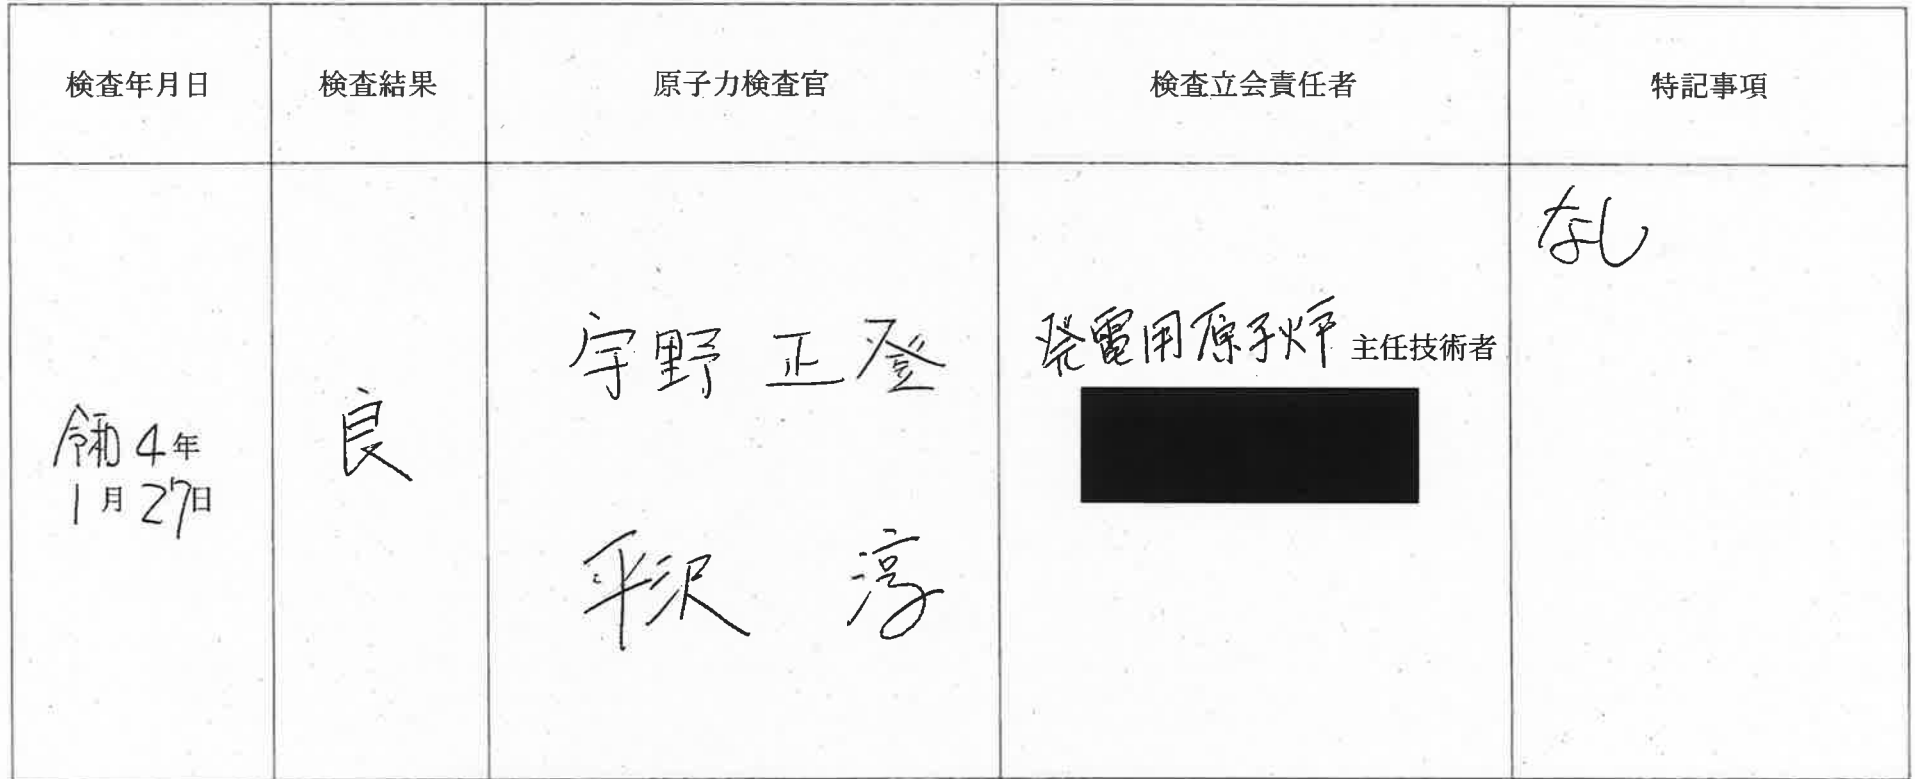 検査年月日 検査結果 原子力検査官 検査立会責任者 特記事項
令和4年
1月27日
良
宇野 正登
平沢 淳
発電用原子炉主任技術者
なし